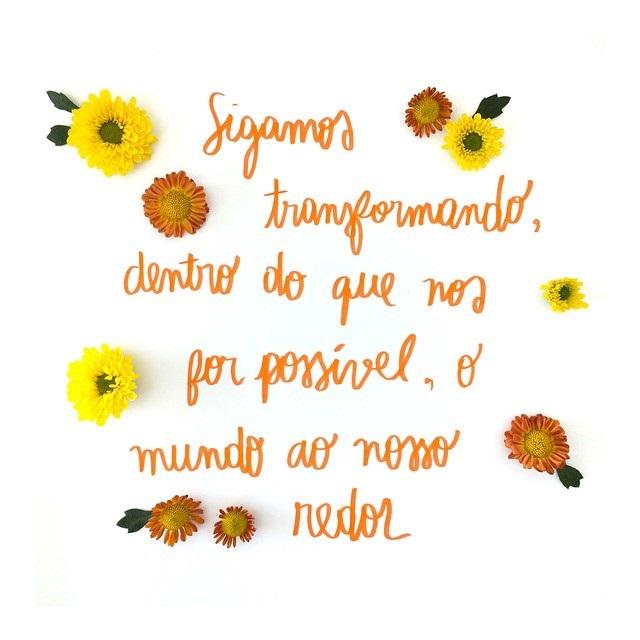 Sigamos
transformando,
dentro do que nos
for possível, o
mundo ao nosso
redor